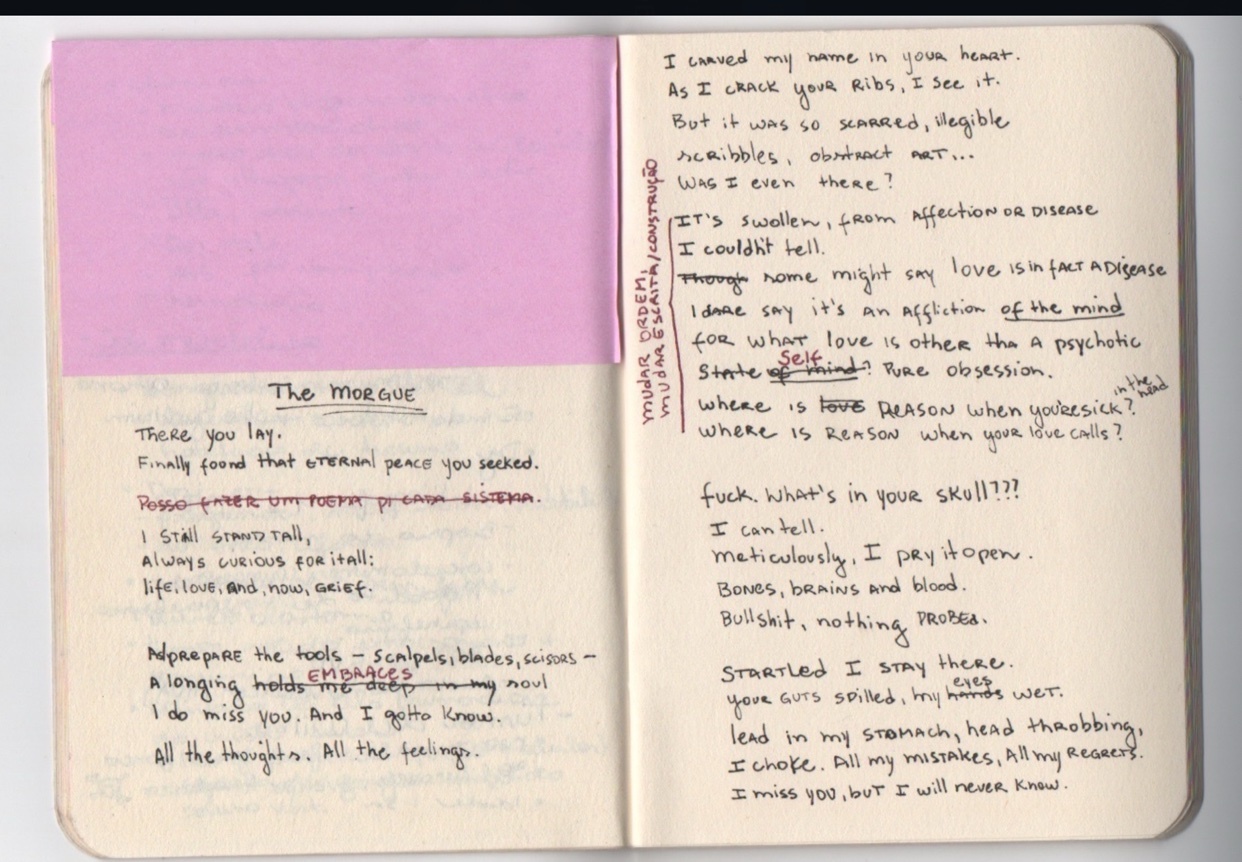 The MORGUE
There you lay.
Finally found that ETERNAL peace you seeked.
Posso fazer um poema p/ cada sistema.
I still stand tall,
Always curious for it all:
life, love, and, now, grief.
As I prepare the tools — scalpels, blades, scisors —
EMBRACES
A longing holds me deep in my soul
I do miss you. And I gotta know.
All the thoughts. All the feelings.
I carved my name in your heart.
As I crack your ribs, I see it.
But it was so scarred, illegible
scribbles, abstract art...
Was I even there?
MUDAR ORDEM,
MUDAR ESCRITA/CONSTRUÇÃO
It's swollen, from affection or disease
I couldn't tell.
Though some might say love is in fact a disease
I dare say it's an affliction of the mind
for what love is other tha a psychotic
Self
State of mind? Pure obsession.
in the head
where is love reason when you're sick?
where is reason when your love calls?
fuck. What's in your skull???
I can tell.
Meticulously, I pry it open.
Bones, brains and blood.
Bullshit, nothing probes.
Startled I stay there.
eyes
your guts spilled, my hands wet.
lead in my stomach, head throbbing,
I choke. All my mistakes, all my regrets.
I miss you, but I will never know.